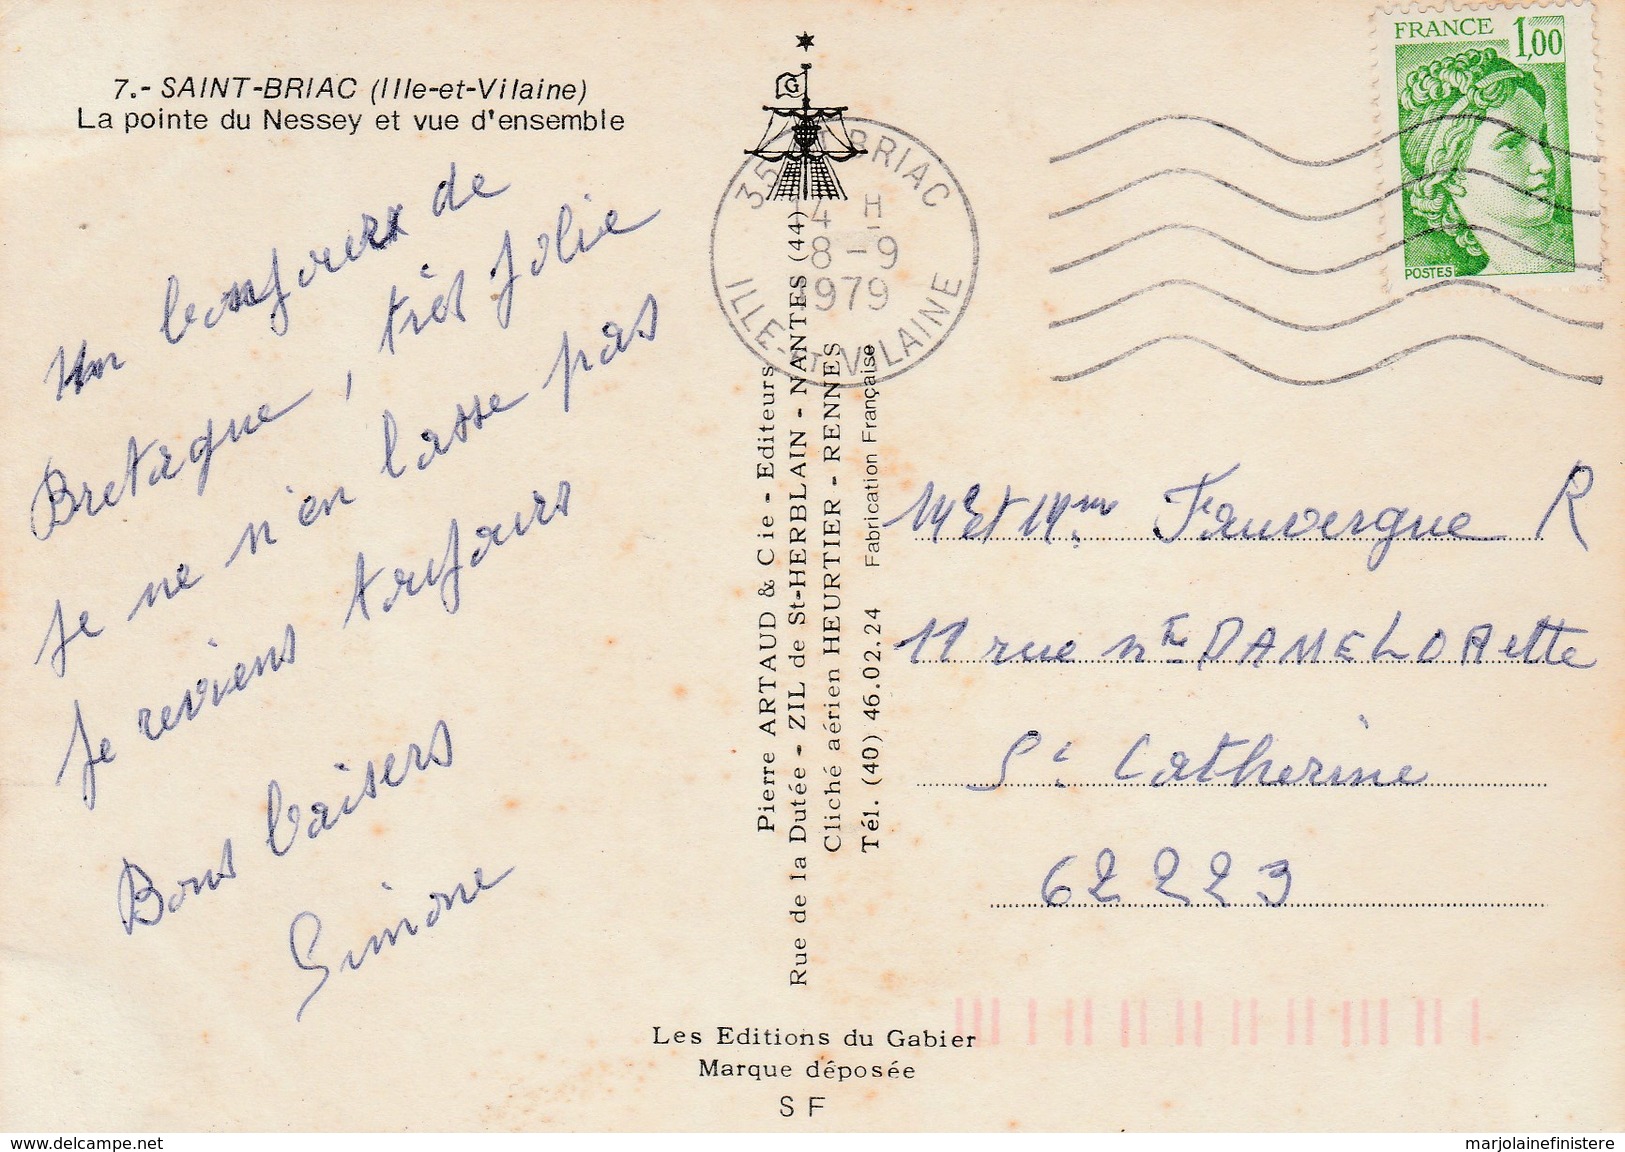 7.- SAINT-BRIAC (Ille-et-Vilaine)
La pointe du Nessey et vue d'ensemble
Un bonjour de
Bretagne, très jolie
je ne n'en lasse pas
Je reviens toujours
Bons baisers
Simone
G
Pierre ARTAUD & Cie - Editeurs
Rue de la Dutée - ZIL de St-HERBLAIN - NANTES (44)
Cliché aérien HEURTIER - RENNES
Tél. (40) 46.02.24 Fabrication Française
Les Editions du Gabier
Marque déposée
SF
35 ST BRIAC
14 H
8-9
1979
ILLE-ET-VILAINE
FRANCE 1,00
POSTES
Mr et Mme Fauvergue R
11 rue N DAME LORette
St Catherine
62223
www.delcampe.net
marjolainefinistere